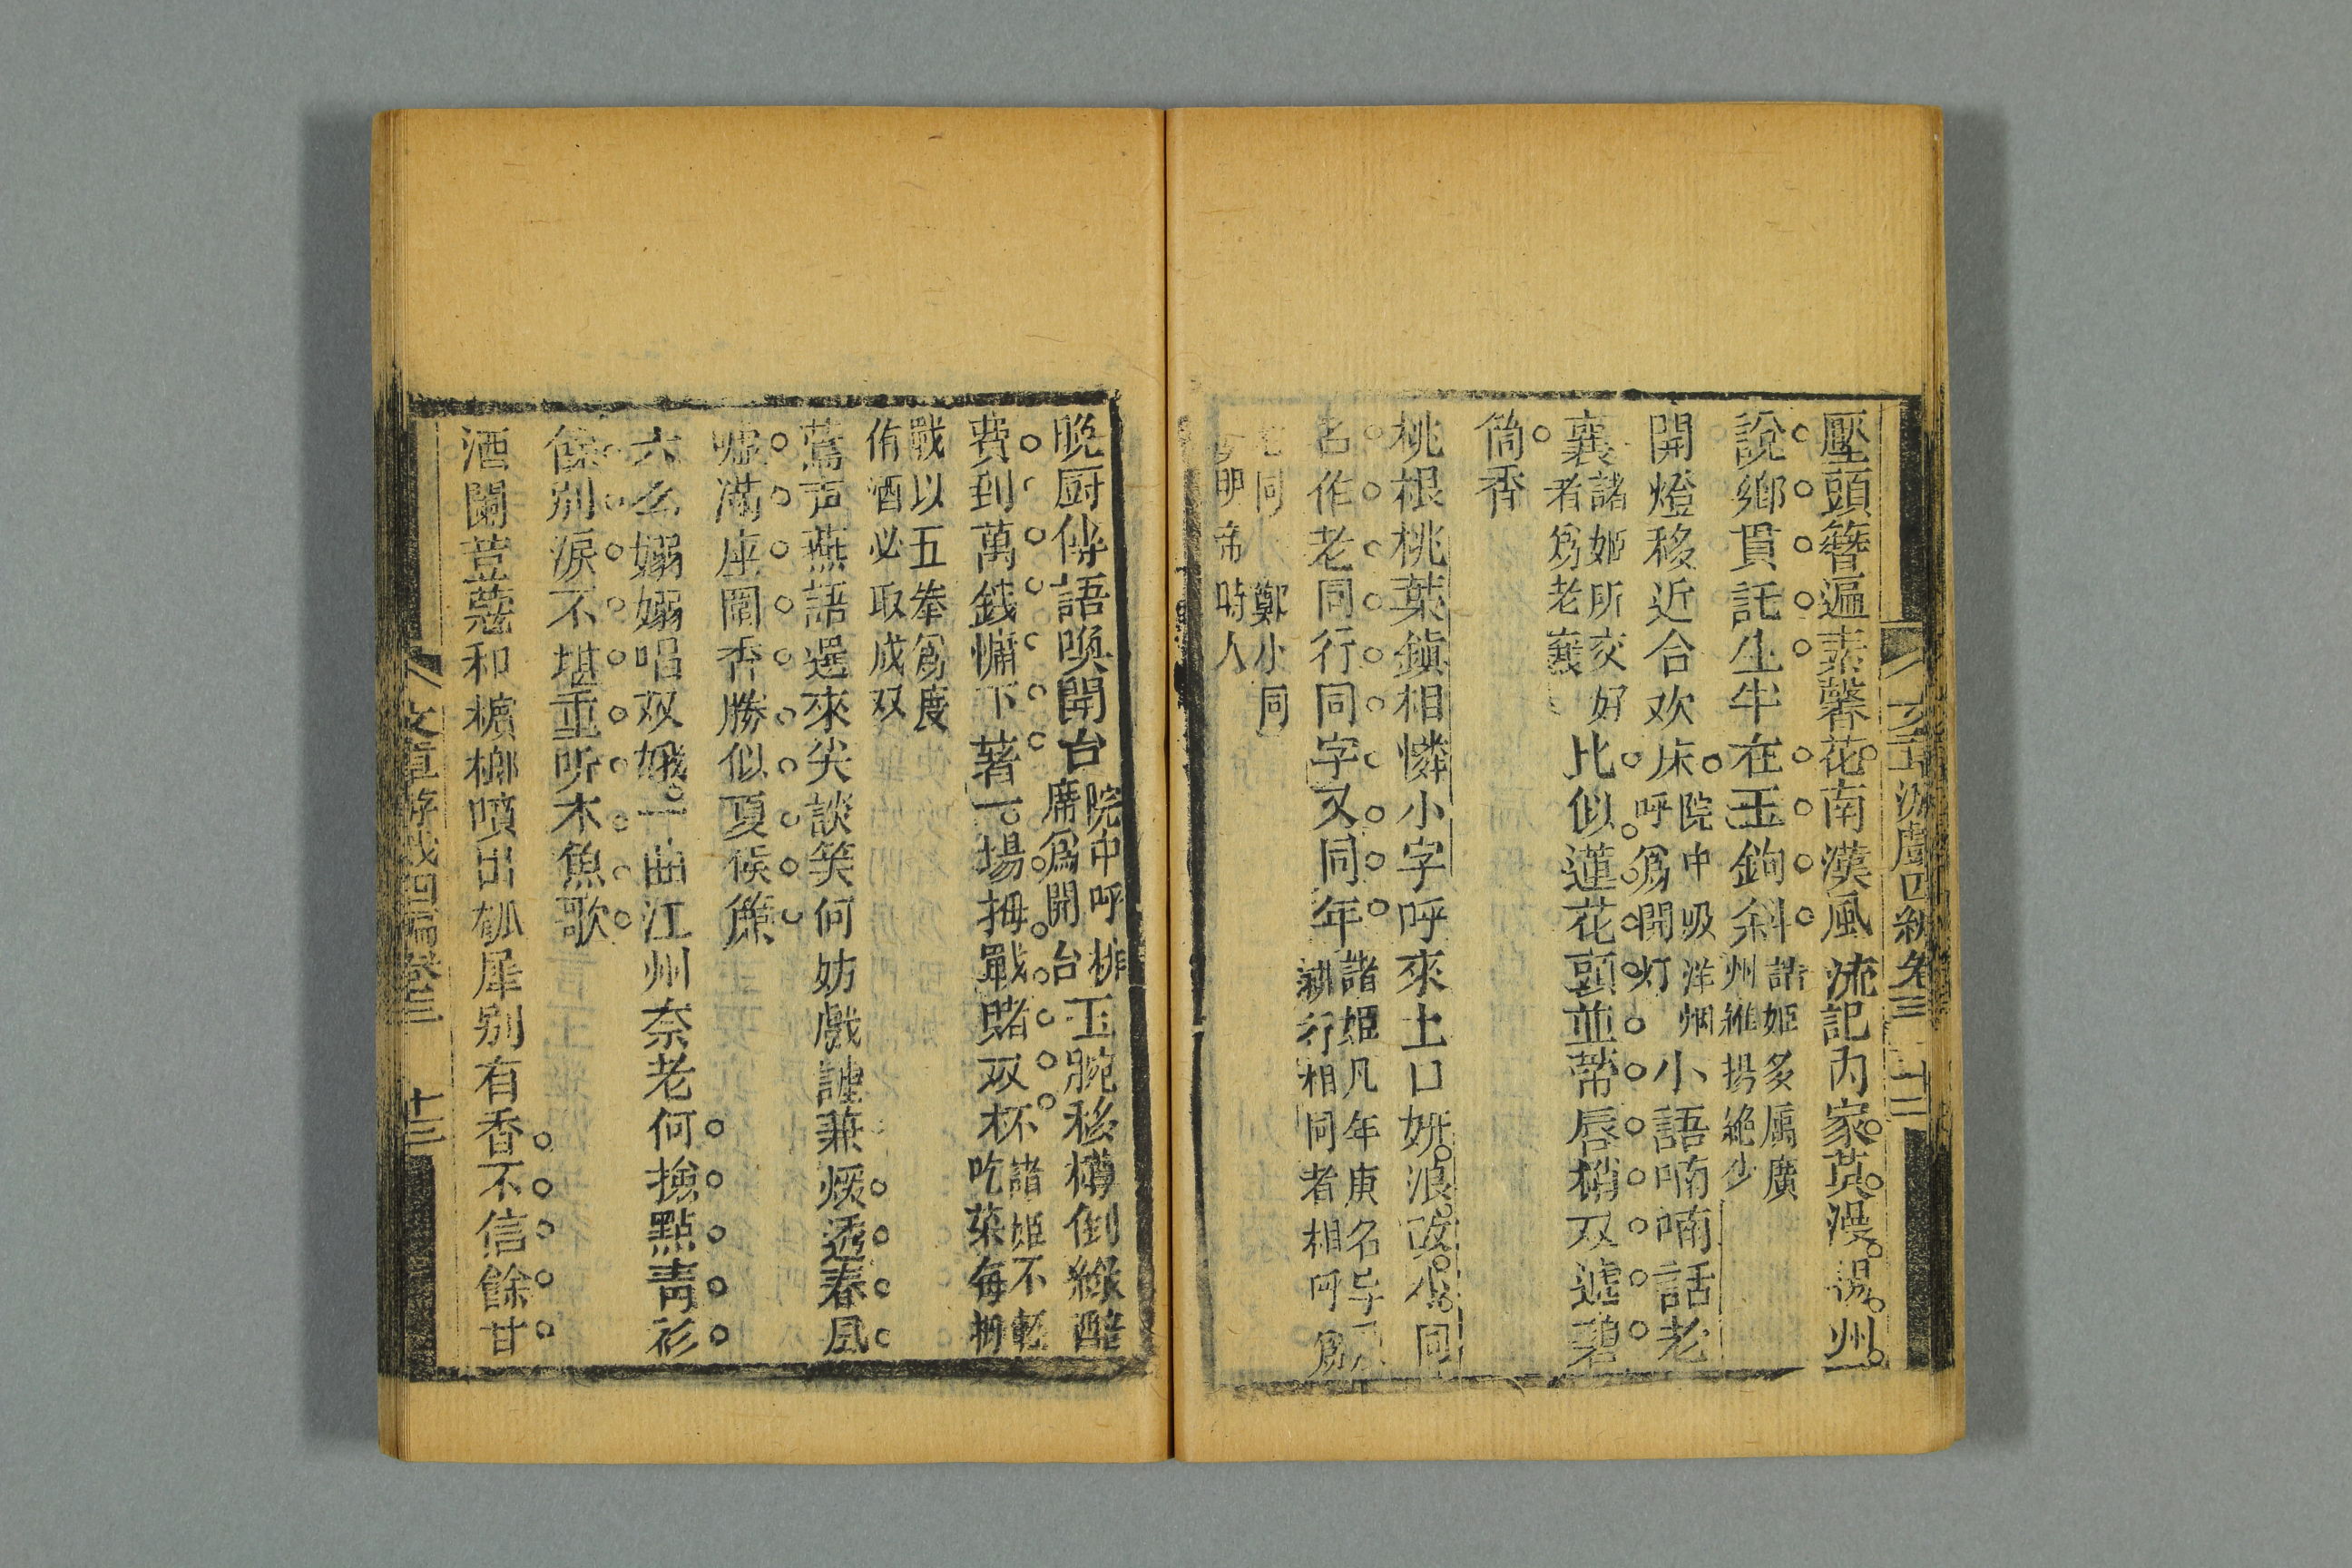 壓頭簪遍素馨花南漢風流記內家莫漫揚州
說鄉貫託生半在玉鉤斜諸姬多属廣
州維揚絶少
開燈移近合欢床院中吸洋烟
呼為開灯小語喃喃話老
襄諸姬所交好
者為老襄比似蓮花頭並蒂唇梢双遞碧
筒香
桃根桃葉鎮相憐小字呼來土口妍浪改小同
名作老同行同字又同年諸姬凡年庚名字
排行相同者相呼為
老同 鄭小同
明帝時人
文章游戲四編卷三 十三
晚厨傳語喚開台院中呼排
席為開台玉腕移樽倒綠醅
費到萬錢慵下著一場拇戰賭双杯諸姬不輕
吃菜每拇
戰以五拳為度
侑酒必取成双
鶯声燕語選來尖談笑何妨戲謔兼煖透春風
嘘滿座閙香勝似夏候簾
六么嫋嫋唱双娥一曲江州奈老何撿點青衫
餘別淚不堪重听木魚歌
酒闌荳蔻和檳榔噴出瓠犀別有香不信餘甘